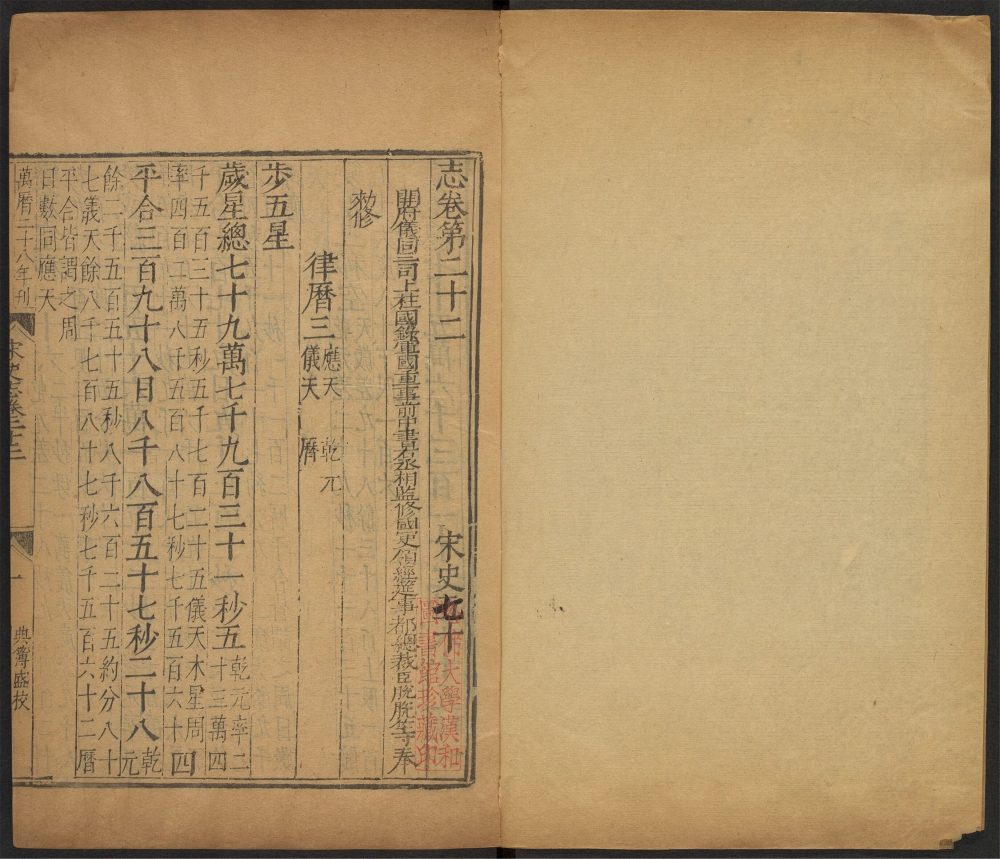 志卷第二十二 宋史七十
開府儀同三司上柱國錄軍國重事前中書右丞相監修國史領經筵事都總裁臣脫脫等奉
勑修
律曆三 應天 乾元
儀天 曆
步五星
歲星總七十九萬七千九百三十一秒五 乾元率二
十三萬四
千五百三十五秒五千七百二十五儀天木星周
率四百二萬八千五百八十七秒七千五百六十四
平合三百九十八日八千八百五十七秒二十八 乾
元
餘二千五百五十五秒八千六百二十五約分八十
七儀天餘八千七百八十七秒七千五百六十二曆
平合皆謂之周
日數同應天
萬曆二十八年刊
宋史志卷二十二
一
典簿盛校
大學漢和
圖書館珍藏印